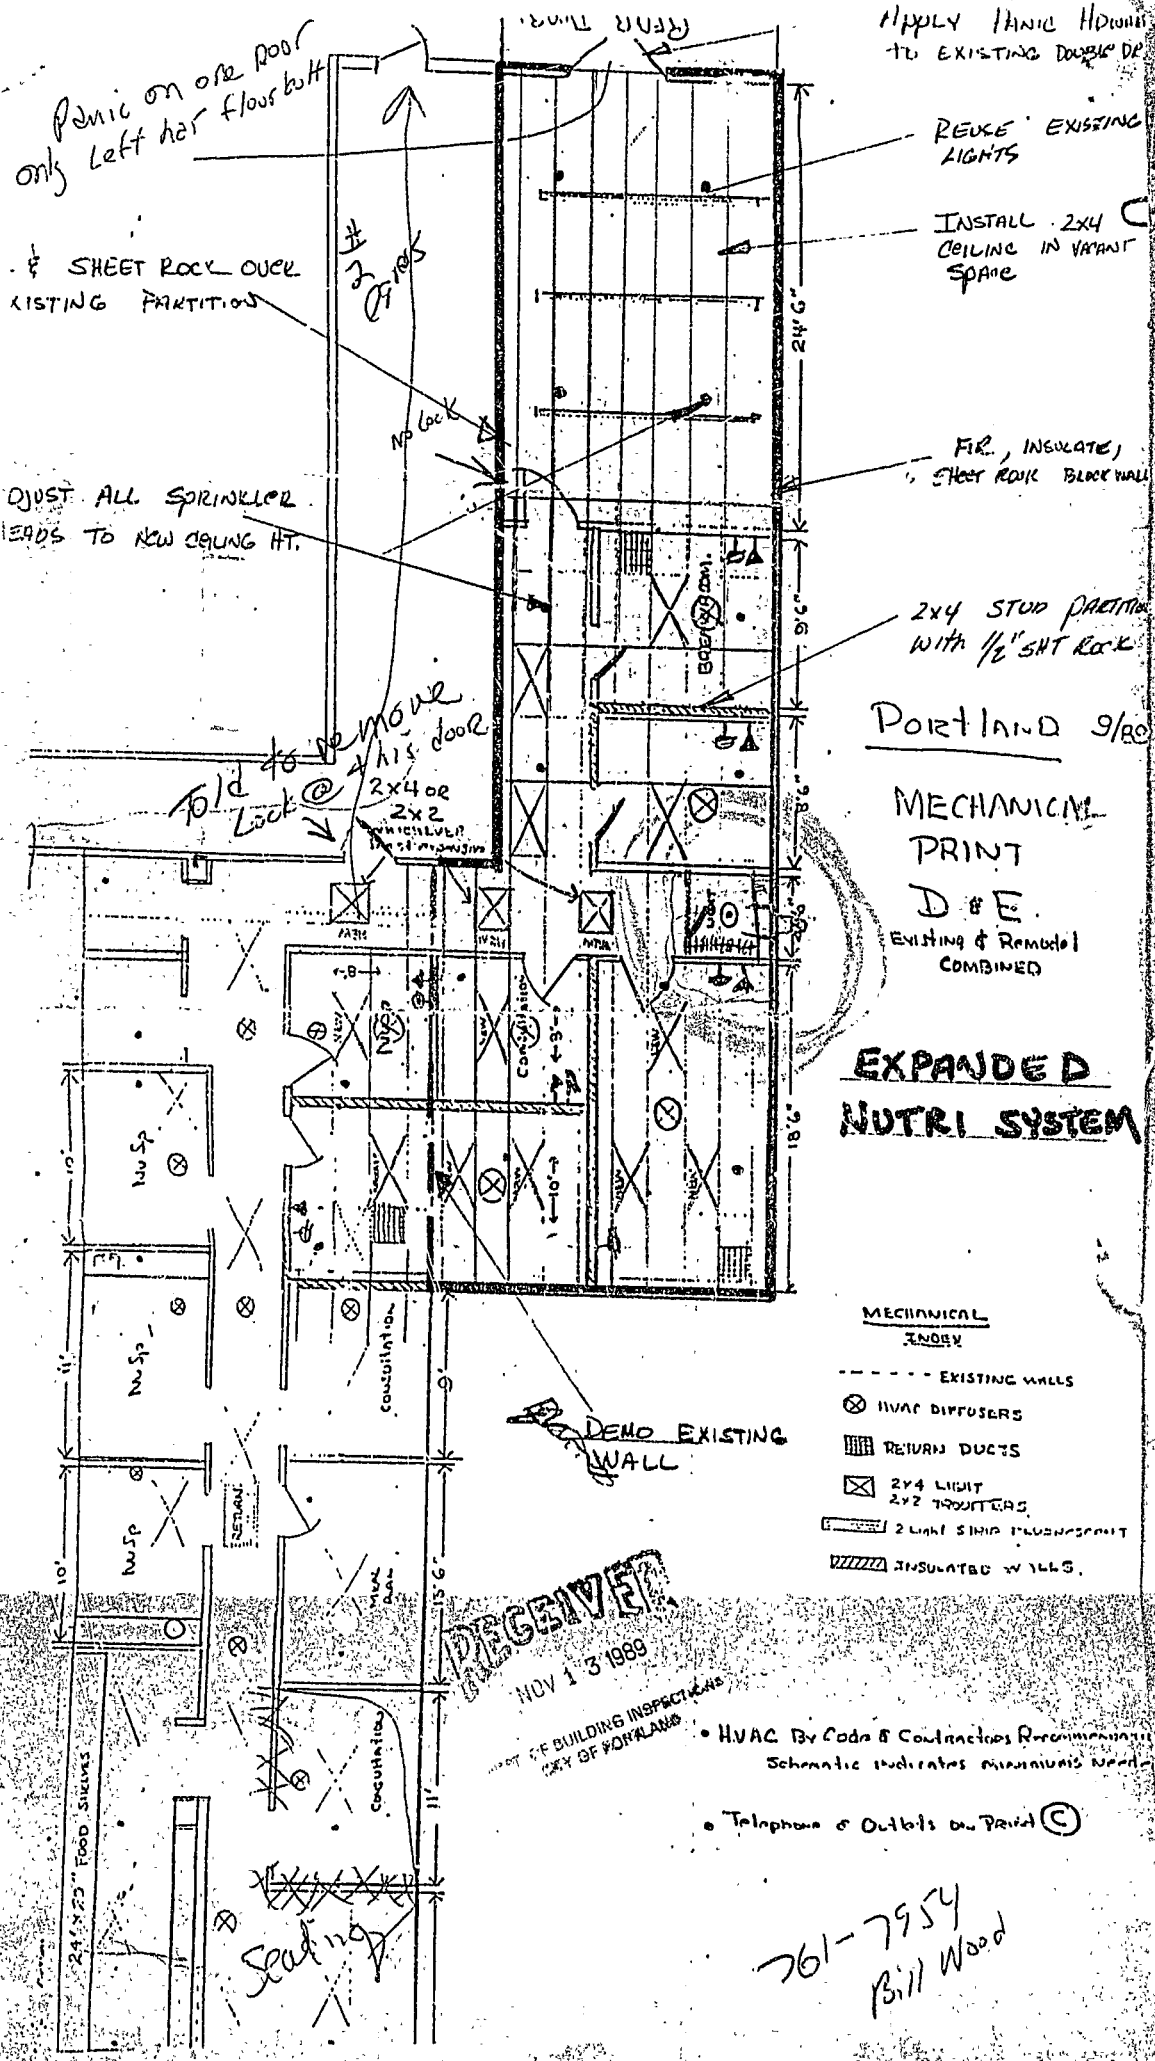 Panic on one Door
only Left has floor bolt
REAR
TO EXISTING DOUBLE
REUSE EXISTING
LIGHTS
INSTALL 2x4
CEILING IN VACANT
SPACE
& SHEET ROCK OVER
XISTING PARTITION
#2
Egress
24'6"
No Lock
FIR, INSULATE,
SHEET ROCK BLOCK WALL
DJUST ALL SPRINKLER
EADS TO NEW CEILING HT.
9'6"
2x4 STUD
with 1/2" SHT ROCK
PORTLAND
Told to remove
Lock @ this door
2x4 OR
2x2
WHICHEVER
MECHANICAL
PRINT
D & E.
EXISTING & Remodel
COMBINED
NEW
NEW
NEW
8'
NEW
NuSp
NEW
Consultation
9'
NEW
EXPANDED
NUTRI SYSTEM
18'6"
10'
NuSp
10'
NEW
NEW
11'
NuSp
Consultation
9'
DEMO EXISTING
WALL
MECHANICAL
INDEX
EXISTING WALLS
HVAC DIFFUSERS
RETURN DUCTS
2x4 LIGHT
2x2 TROFFERS
2 Light STRIP FLUORESCENT
INSULATED WALLS.
RETURN
10'
NuSp
15'6"
RECEIVED
NOV 13 1989
DEPT OF BUILDING INSPECTIONS
CITY OF PORTLAND
• HVAC By Code & Contractors
Schematic indicates minimums
• Telephone & Outlets on Print C
Consultation
11'
24' x 23" FOOD SHELVES
Seating
761-7954
Bill Wood